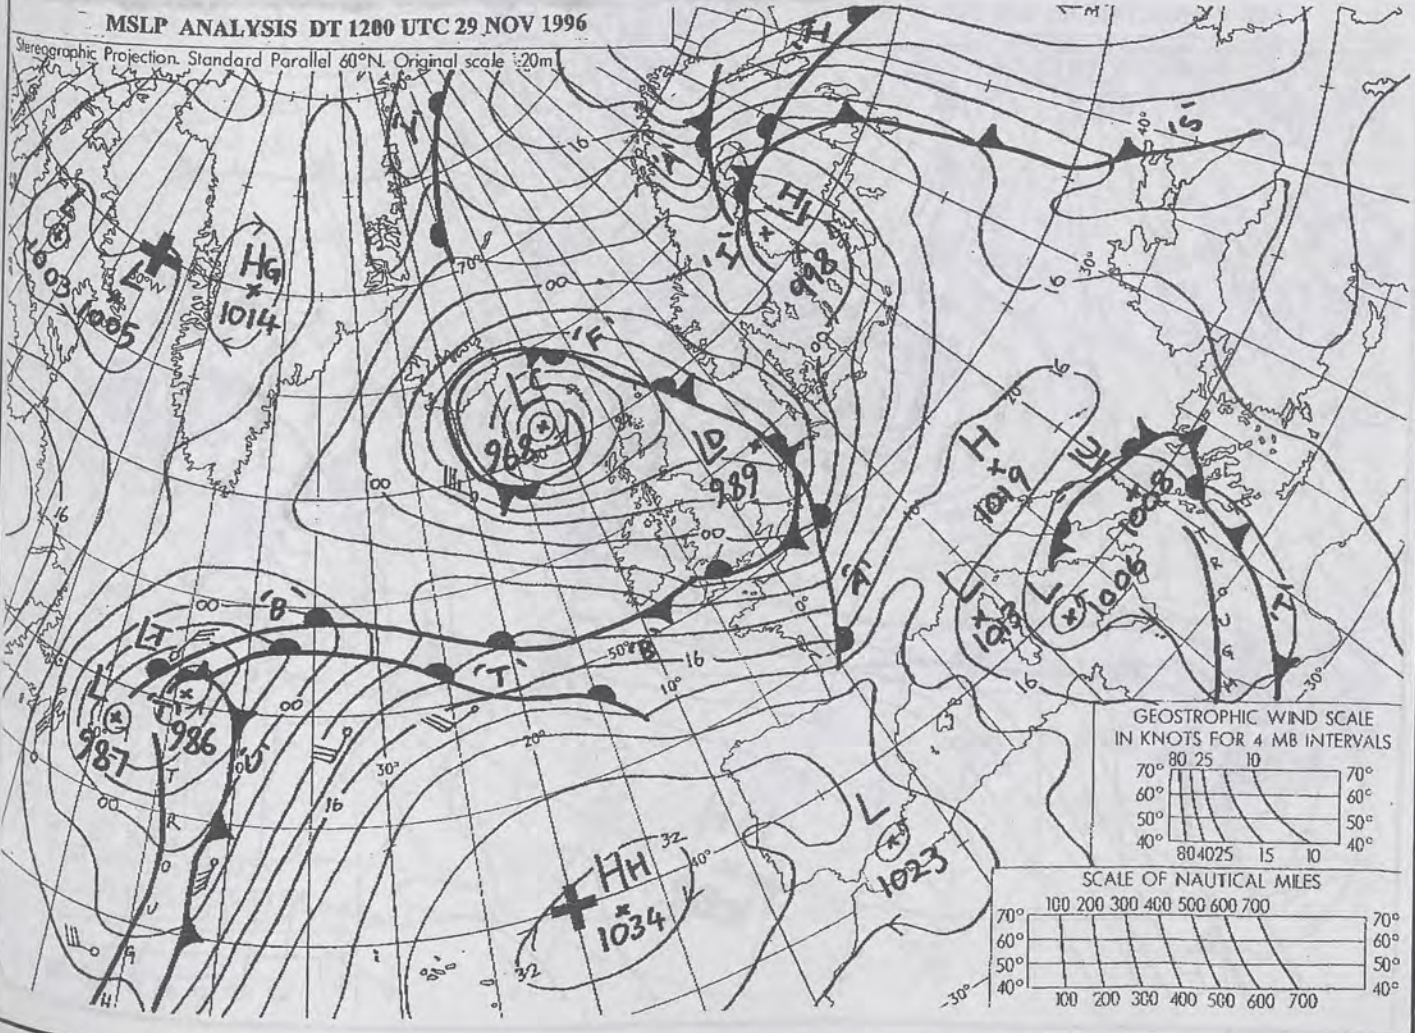 MSLP ANALYSIS DT 1200 UTC 29 NOV 1996
Stereographic Projection. Standard Parallel 60°N. Original scale 1:20m
'H'
'S'
40°
16
HI
998
'I'
30°
16
1003
L
40°W
1005
HG
1014
70°
00
'F'
LF
968
LD
989
00
00
00
16
H
1019
16
LU
1008
L
1006
L
1013
16
'T'
TROUGH
30°
'A'
0°
'B'
00
LT
L
987
986
'U'
00
00
'T'
50°
'B'
16
10°
20°
30°
16
TROUGH
32
HH
1034
32
40°
L
1023
30°
GEOSTROPHIC WIND SCALE
IN KNOTS FOR 4 MB INTERVALS
80 25 10
70° 70°
60° 60°
50° 50°
40° 40°
80 40 25 15 10
SCALE OF NAUTICAL MILES
100 200 300 400 500 600 700
70° 70°
60° 60°
50° 50°
40° 40°
100 200 300 400 500 600 700